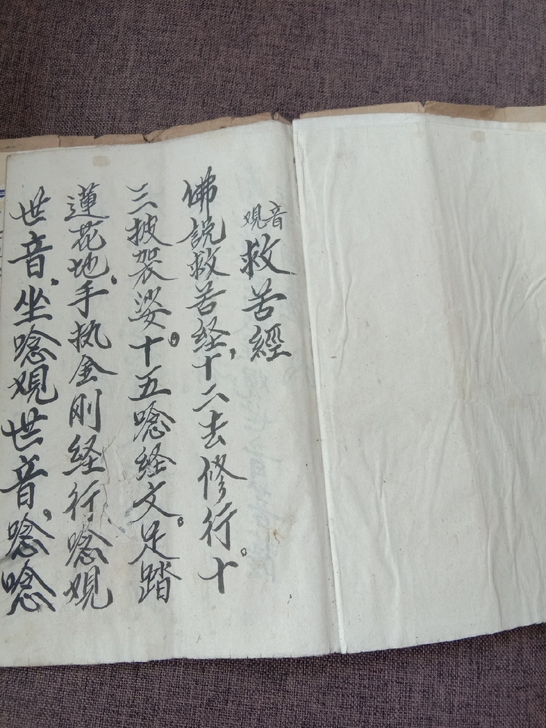 觀音救苦經
佛説救苦経,十二去修行。十
三披袈娑。十五唸経文。足踏
蓮花地,手执金刚経行唸觀
世音,坐唸觀世音。唸唸